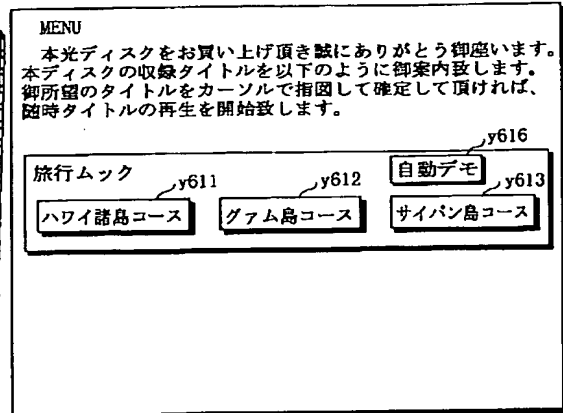 MENU
本光ディスクをお買い上げ頂き誠にありがとう御座います。
本ディスクの収録タイトルを以下のように御案内致します。
御所望のタイトルをカーソルで指図して確定して頂ければ、
随時タイトルの再生を開始致します。
y616
旅行ムック
自動デモ
y611
y612
y613
ハワイ諸島コース
グァム島コース
サイパン島コース